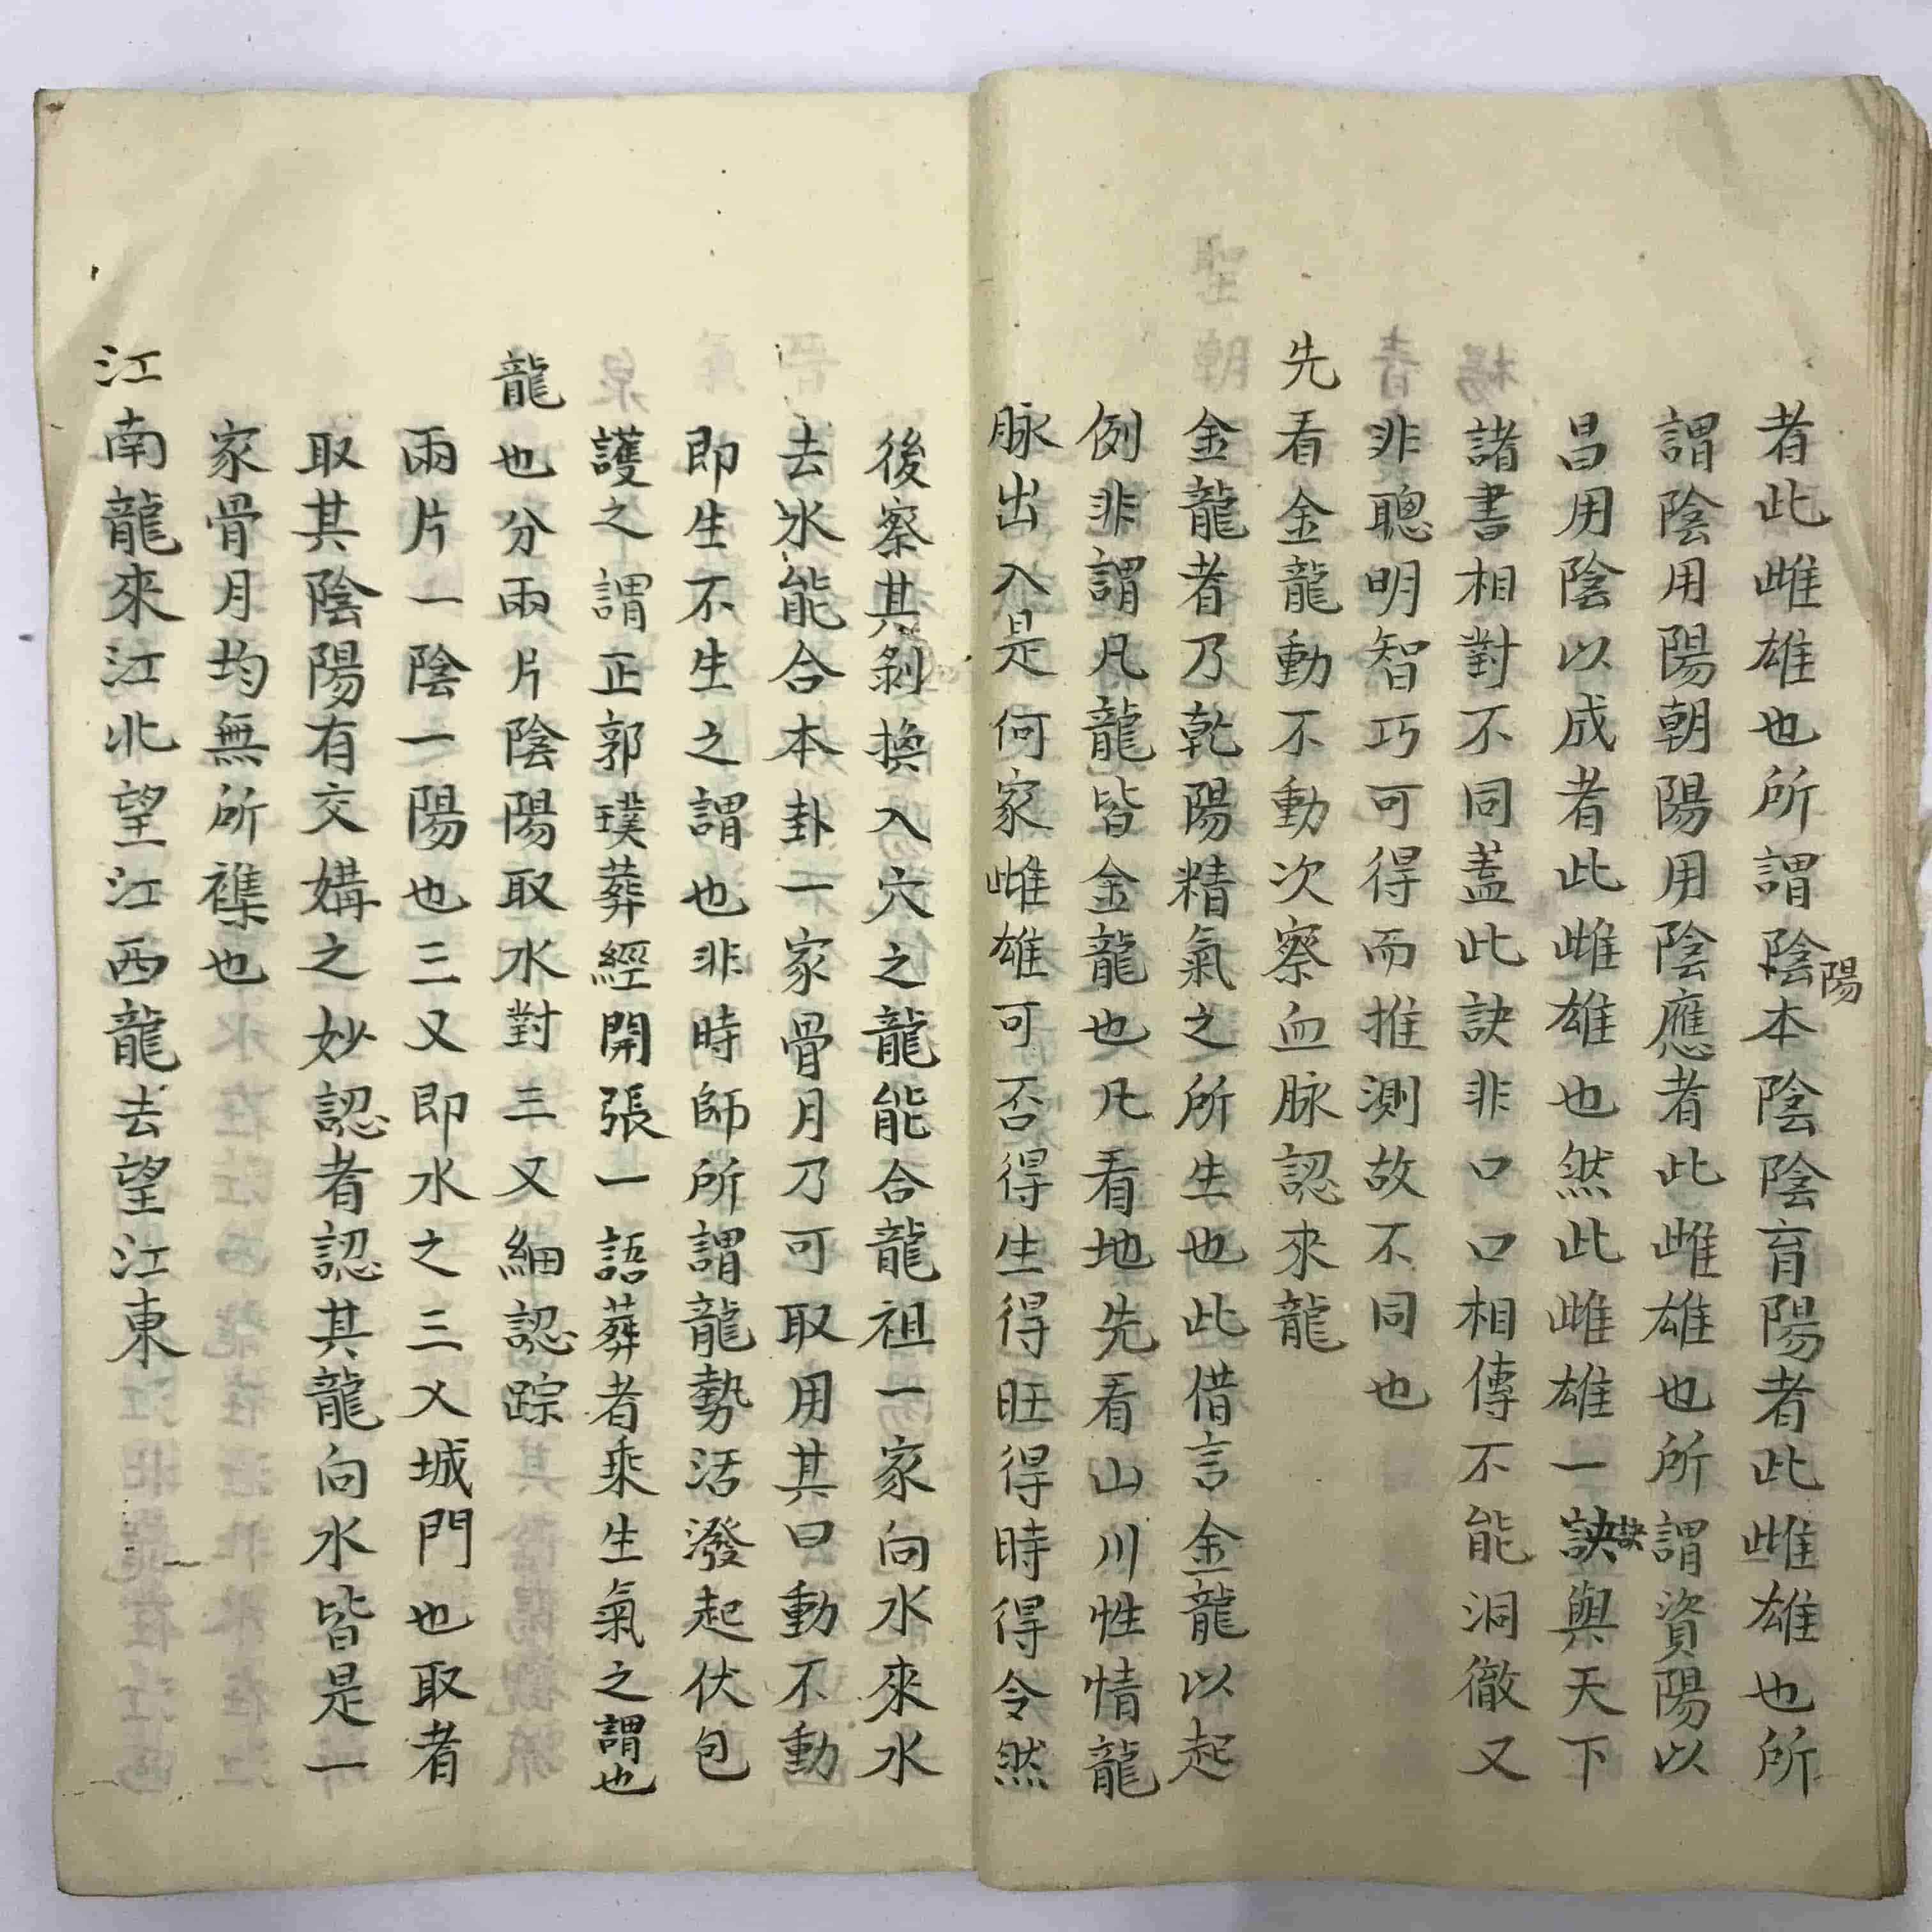 者此雌雄也所謂陰陽本陰陰育陽者此雌雄也所
謂陰用陽朝陽用陰應者此雌雄也所謂資陽以
昌用陰以成者此雌雄也然此雌雄一訣訣與天下
諸書相對不同蓋此訣非口口相傳不能洞徹又
非聰明智巧可得而推測故不同也
先看金龍動不動次察血脉認來龍
金龍者乃乾陽精氣之所生也此借言金龍以起
例非謂凡龍皆金龍也凡看地先看山川性情龍
脉出入是何家雌雄可否得生得旺得時得令然
後察其剝換入穴之龍能合龍祖一家向水來水
去水能合本卦一家骨月乃可取用其曰動不動
即生不生之謂也非時師所謂龍勢活潑起伏包
護之謂正郭璞葬經開張一語葬者乘生氣之謂也
龍也分兩片陰陽取水對三叉細認踪
兩片一陰一陽也三又即水之三乂城門也取者
取其陰陽有交媾之妙認者認其龍向水皆是一
家骨月均無所襍也
江南龍來江北望江西龍去望江東